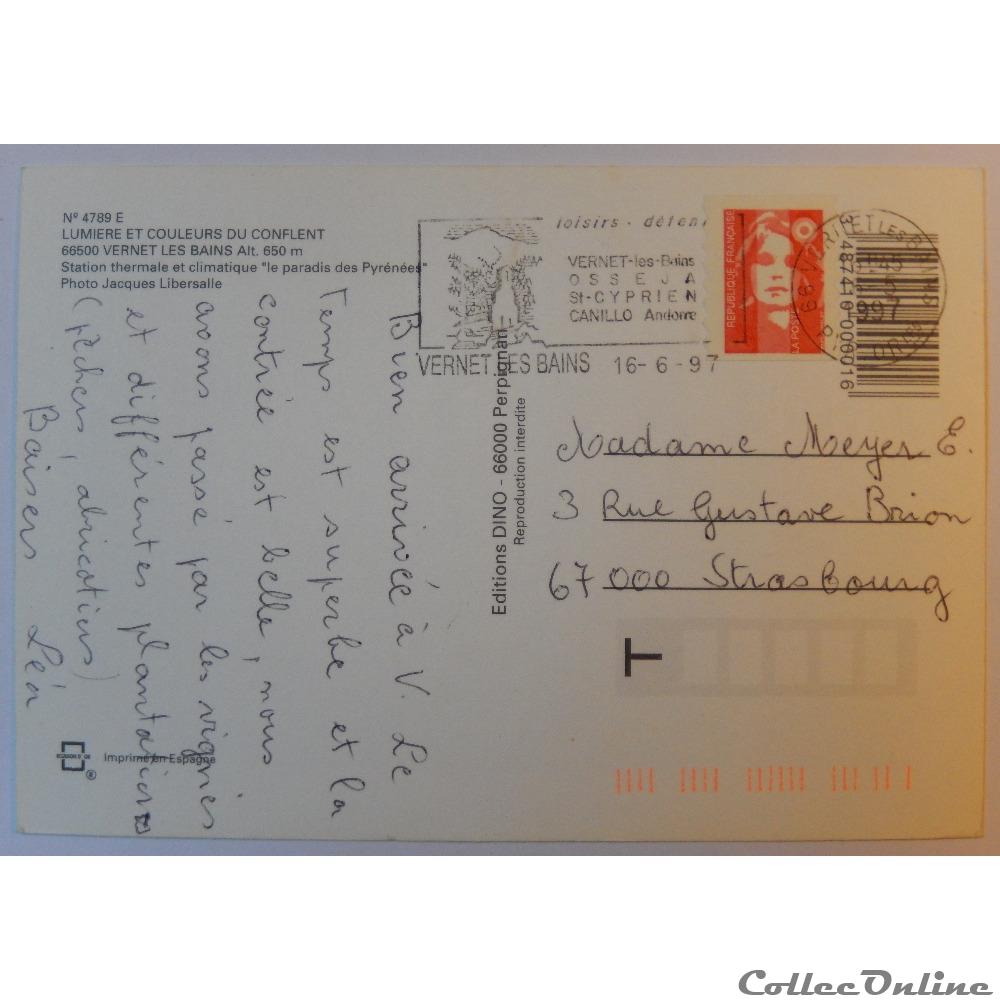 Nº 4789 E
LUMIERE ET COULEURS DU CONFLENT
66500 VERNET LES BAINS Alt. 650 m
Station thermale et climatique "le paradis des Pyrénées"
Photo Jacques Libersalle
Bien arrivée à V. Le
Temps est superbe et la
contrée est belle, nous
avons passé par les vignes
et différentes plantations
(pêchers, abricotiers)
Baisers Léa
Imprimé en Espagne
Editions DINO - 66000 Perpignan
Reproduction interdite
loisirs - déten
VERNET-les-Bains
OSSEJA
St-CYPRIEN
CANILLO Andorre
VERNET LES BAINS 16-6-97
REPUBLIQUE FRANÇAISE
LA POSTE
3 487410 006016
Madame Meyer E.
3 Rue Gustave Brion
67000 Strasbourg
T
CollecOnline